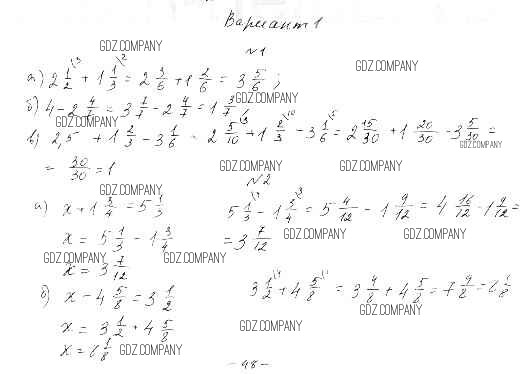 Вариант 1
GDZ.COMPANY
№1
GDZ.COMPANY
а) 2 1/2 + 1 1/3 = 2 3/6 + 1 2/6 = 3 5/6 ;
GDZ.COMPANY
б) 4 - 2 4/7 = 3 7/7 - 2 4/7 = 1 3/7
GDZ.COMPANY
в) 2,5 + 1 2/3 - 3 1/6 = 2 5/10 + 1 2/3 - 3 1/6 = 2 15/30 + 1 20/30 - 3 5/30 =
GDZ.COMPANY
= 30/30 = 1
GDZ.COMPANY GDZ.COMPANY
№2
GDZ.COMPANY
а) x + 1 3/4 = 5 1/3
5 1/3 - 1 3/4 = 5 4/12 - 1 9/12 = 4 16/12 - 1 9/12 =
x = 5 1/3 - 1 3/4
= 3 7/12
GDZ.COMPANY GDZ.COMPANY
GDZ.COMPANY GDZ.COMPANY
x = 3 7/12
б) x - 4 5/8 = 3 1/2
3 1/2 + 4 5/8 = 3 4/8 + 4 5/8 = 7 9/8 = 8 1/8
GDZ.COMPANY
x = 3 1/2 + 4 5/8
GDZ.COMPANY
x = 8 1/8
GDZ.COMPANY
- 48 -